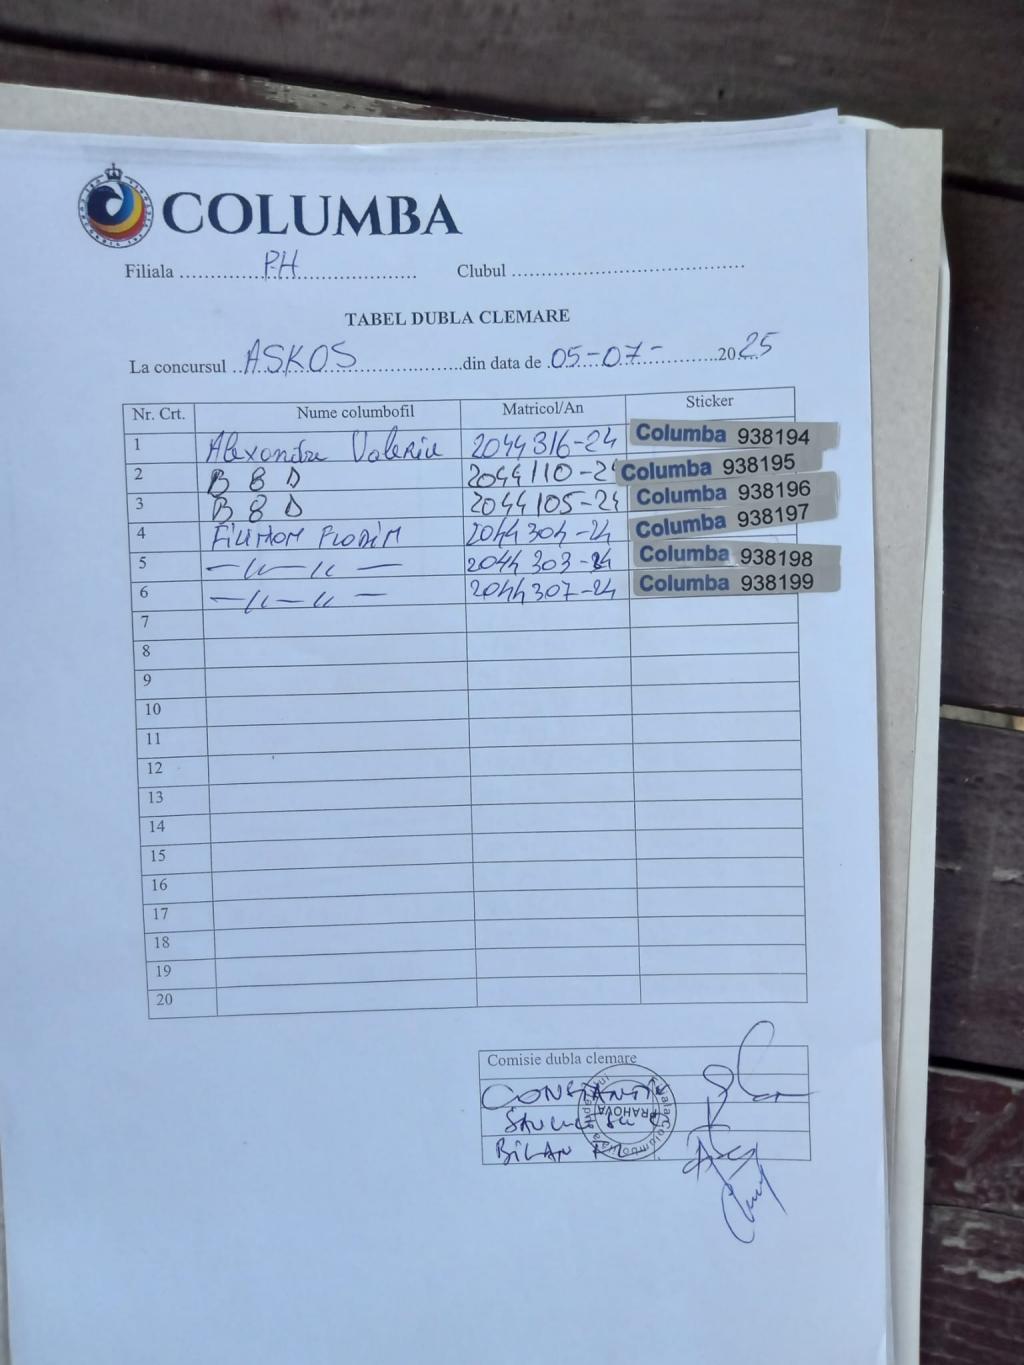 COLUMBA
Filiala PH Clubul
TABEL DUBLA CLEMARE
La concursul ASKOS din data de 05-07- 2025
Nr. Crt. Nume columbofil Matricol/An Sticker
1 Alexandru Valeriu 2044316-24 Columba 938194
2 B B D 2044110-24 Columba 938195
3 B B D 2044105-24 Columba 938196
4 Filimon Florin 2044304-24 Columba 938197
5 —〃—〃— 2044303-24 Columba 938198
6 —〃—〃— 2044307-24 Columba 938199
7
8
9
10
11
12
13
14
15
16
17
18
19
20
Comisie dubla clemare
CONSTANTIN
BILAN
PRAHOVA